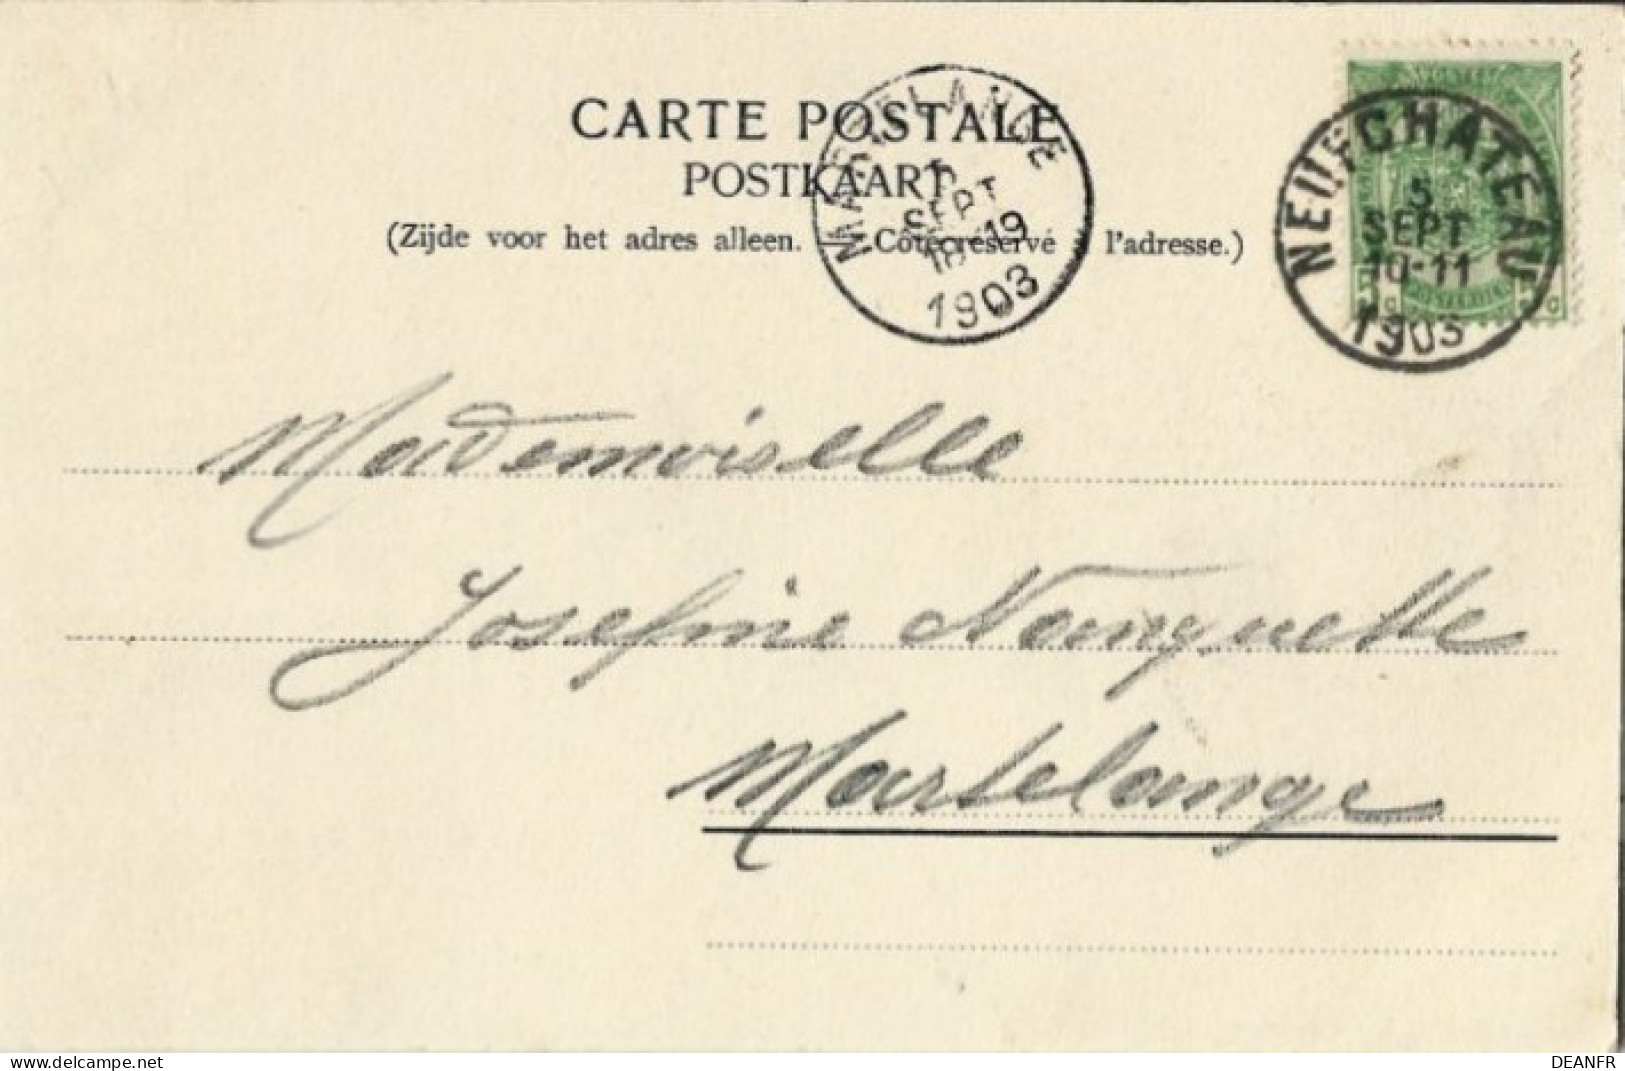 CARTE POSTALE
POSTKAART
(Zijde voor het adres alleen. — Côté réservé à l'adresse.)
MARTELANGE
5
SEPT
18-19
1903
NEUFCHATEAU
5
SEPT
10-11
1903
POSTES
5 c 5 c
Mademoiselle
Josefine Nanquette
Martelange
www.delcampe.net
DEANFR